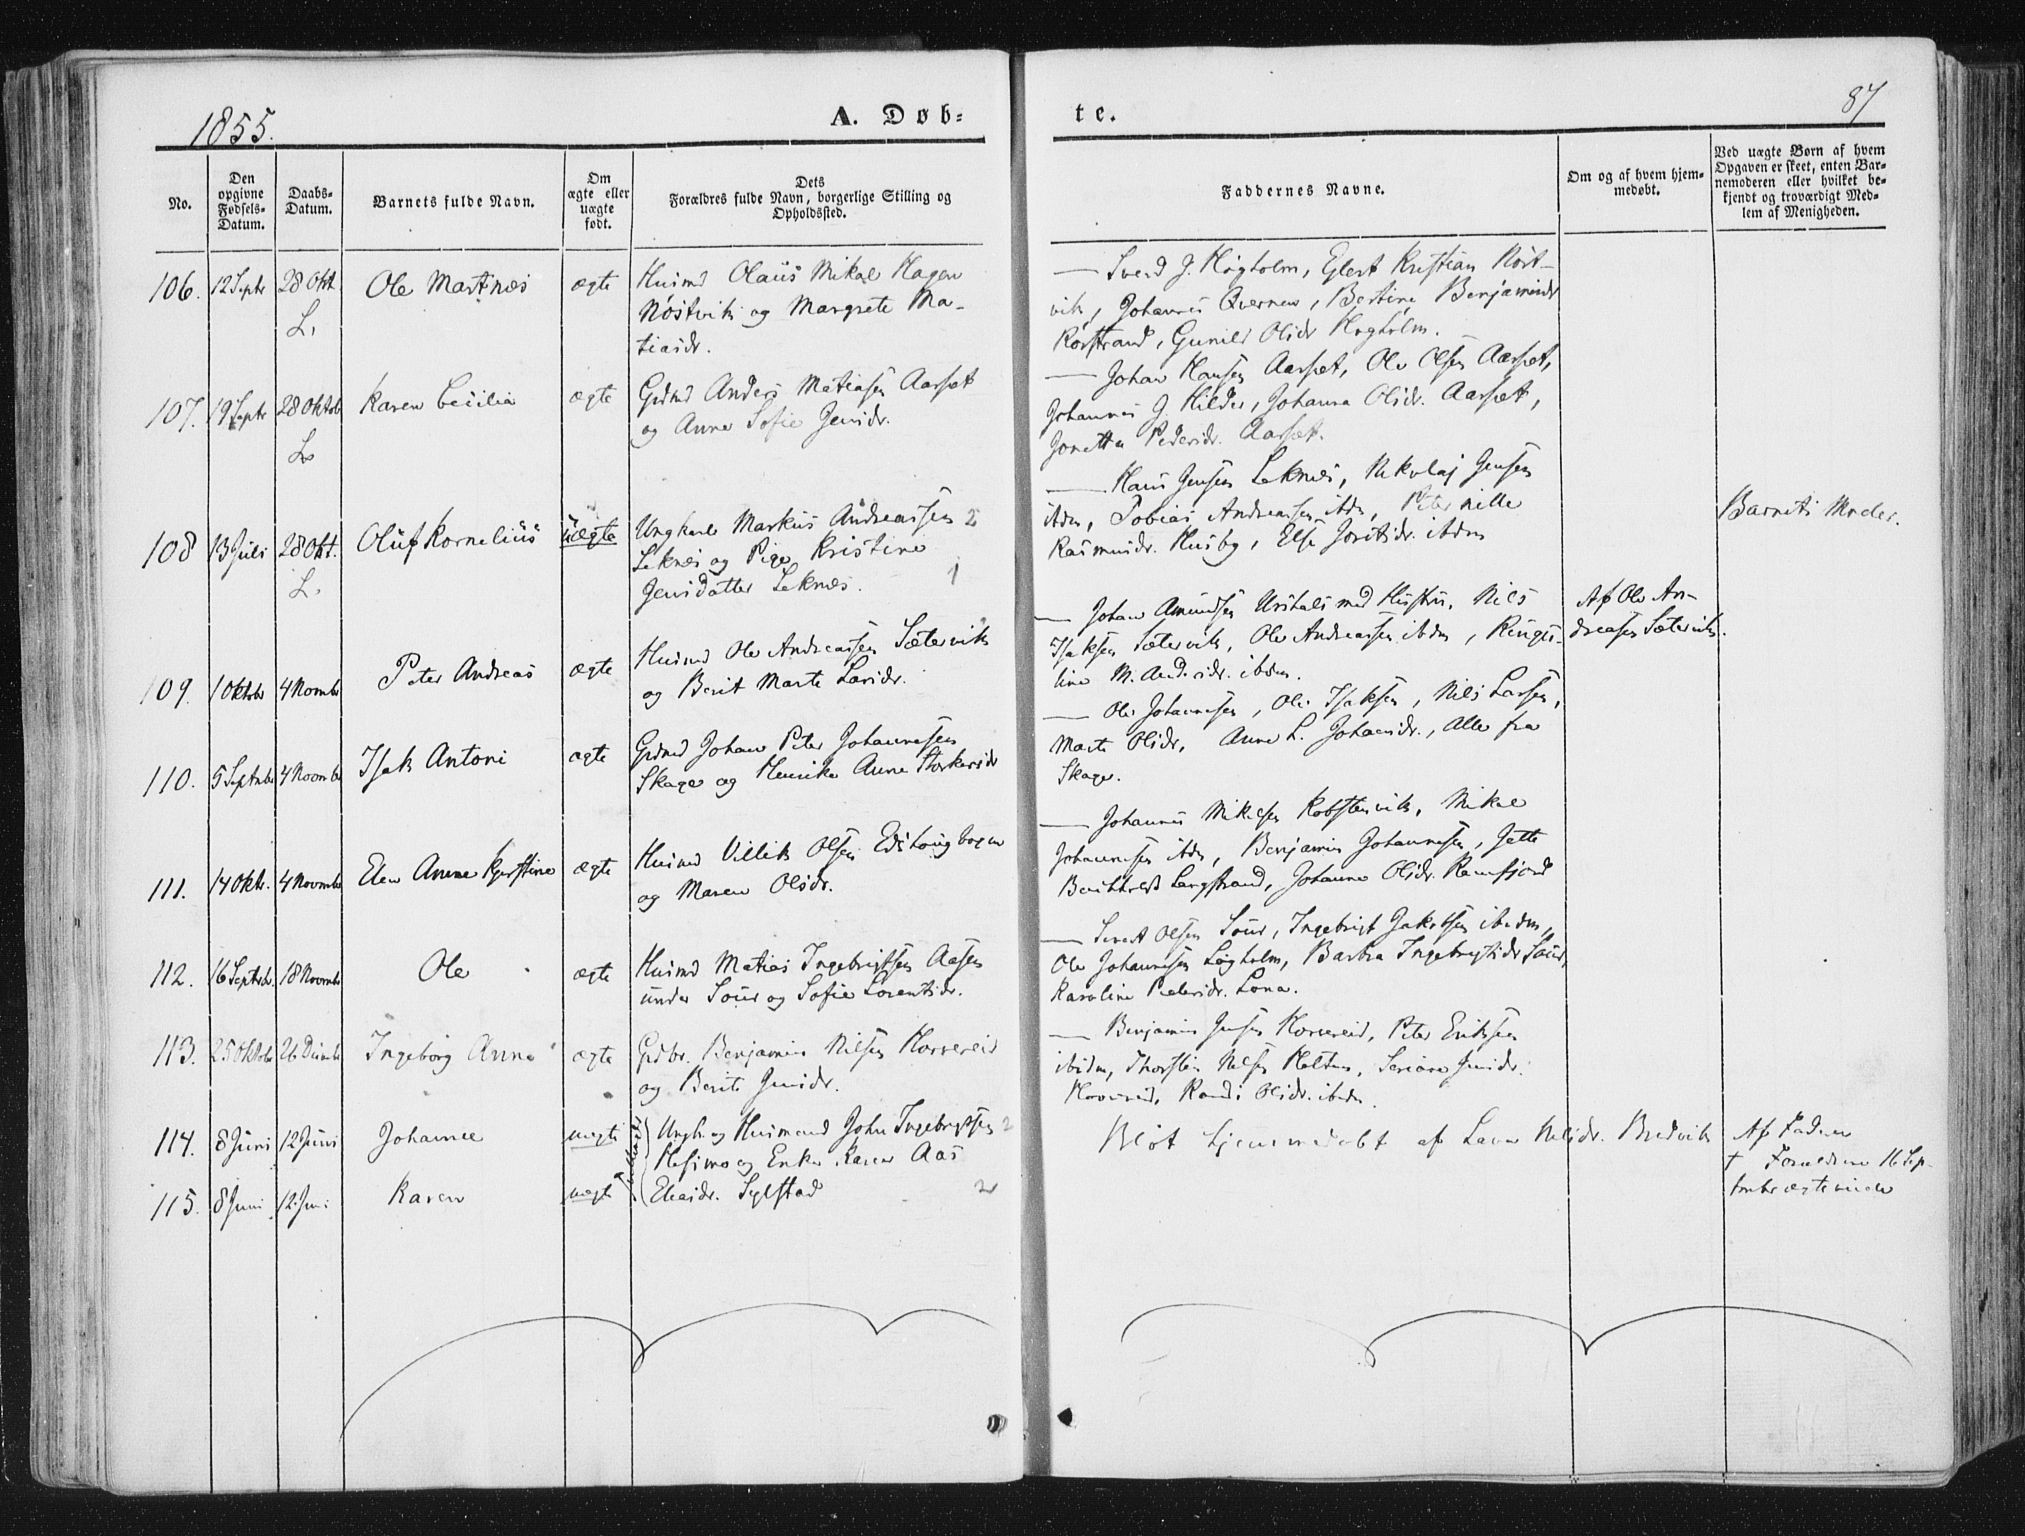 1855.
A. Døb-
te.
87
No.
Den opgivne Fødsels-Datum.
Daabs-Datum.
Barnets fulde Navn.
Om ægte eller uægte født.
Dets Forældres fulde Navn, borgerlige Stilling og Opholdssted.
Faddernes Navne.
Om og af hvem hjemmedøbt.
Ved uægte Børn af hvem Opgaven er skeet, enten Barnemoderen eller hvilket bekjendt og troværdigt Medlem af Menigheden.
106. 12 Septr 28 Okt. Ole Martnes ægte Husmd Olaus Mikal Hagen
L. Nøstvik og Margrete Ma-
tiasdr.
— Svend J. Høgholm, Eglert Kristian Nøst-
vik, Johannes Qvernen, Bertine Benjaminsdr
Rørstrand, Gunild Olsdr Høgholm.
107. 19 Septr 28 Oktob Karen Cecilia ægte Grdmd Anders Matiasen Aarset
L. og Anne Sofie Jensdr.
— Johan Hansen Aarset, Ole Olsen Aarset,
Johannes J. Hilder, Johanna Olsdr. Aarset,
Jonetta Pedersdr. Aarset.
108 13 Juli 28 Okt. Oluf Kornelius uægte Ungkarl Markus Andreassen 2
L. Leknes og Pige Kristine
Jensdatter Leknes. 1
— Hans Jensen Leknes, Nikolaj Jensen
ibdm, Tobias Andreassen ibdm, Peternille
Rasmusdr. Husby, Else Jonsdr. ibdm
Barnets Moder.
109. 1 Oktobr 4 Novmbr Peter Andreas ægte Husmd Ole Andreassen Sætervik
og Berit Marte Larsdr.
— Johan Amundsen Urstals med Hustru, Nils
Isaksen Sætervik, Ole Andreassen ibdm,
line M. Andersdr. ibdm.
Af Ole An-
dreasen Sætervik.
110. 5 Septmbr 4 Novmbr Isak Antoni ægte Grdmd Johan Peter Johannesen
Skage og Henrika Anna Storkersdr
— Ole Johannesen, Ole Isaksen, Nils Larsen,
Marte Olsdr, Anne L. Johansdr., Alle fra
Skage.
111. 14 Oktr. 4 Novmbr Elen Anne Kjerstine ægte Husmd Villik Olsen
og Maren Olsdr.
— Johannes Mikelsen Kobstenvik, Mikal
Johannesen ibdm, Benjamin Johannesen, Jette
Langstrand, Johanna Olsdr. Ramfjord
112. 16 Septbr. 18 Novmbr Ole ægte Husmd Matias Ingebrigtsen Aasen
under Sour og Sofie Lorentsdr.
— Sivert Olsen Sour, Ingebrigt Jakobsen ibidm,
Ole Johannesen Løgholm, Barbra Ingebrigtsdr Sour,
Karoline Pedersdr. Lona.
113. 25 Oktobr 26 Decmbr Ingeborg Anna ægte Grdbr. Benjamin Nilsen Horsereid
og Berit Jensdr.
— Benjamin Jensen Horsereid, Peter Eriksen
ibidm, Thorsten Nilsen Holten, Seriane Jensdr.
Horsereid, Randi Olsdr. ibdm.
114. 8 Juni 12 Juni Johanne uægte Ungk. og Husmand John Ingebrigtsen 2
og Enke Karen Aas
115. 8 Juni 12 Juni Karen uægte Eliasdr. Sylstad 2
Blot hjemmedøbt af Lava Nilsdr. Bredvik
Af Fadren
† Forældrene 16 Sep-
tmbr ægteviede